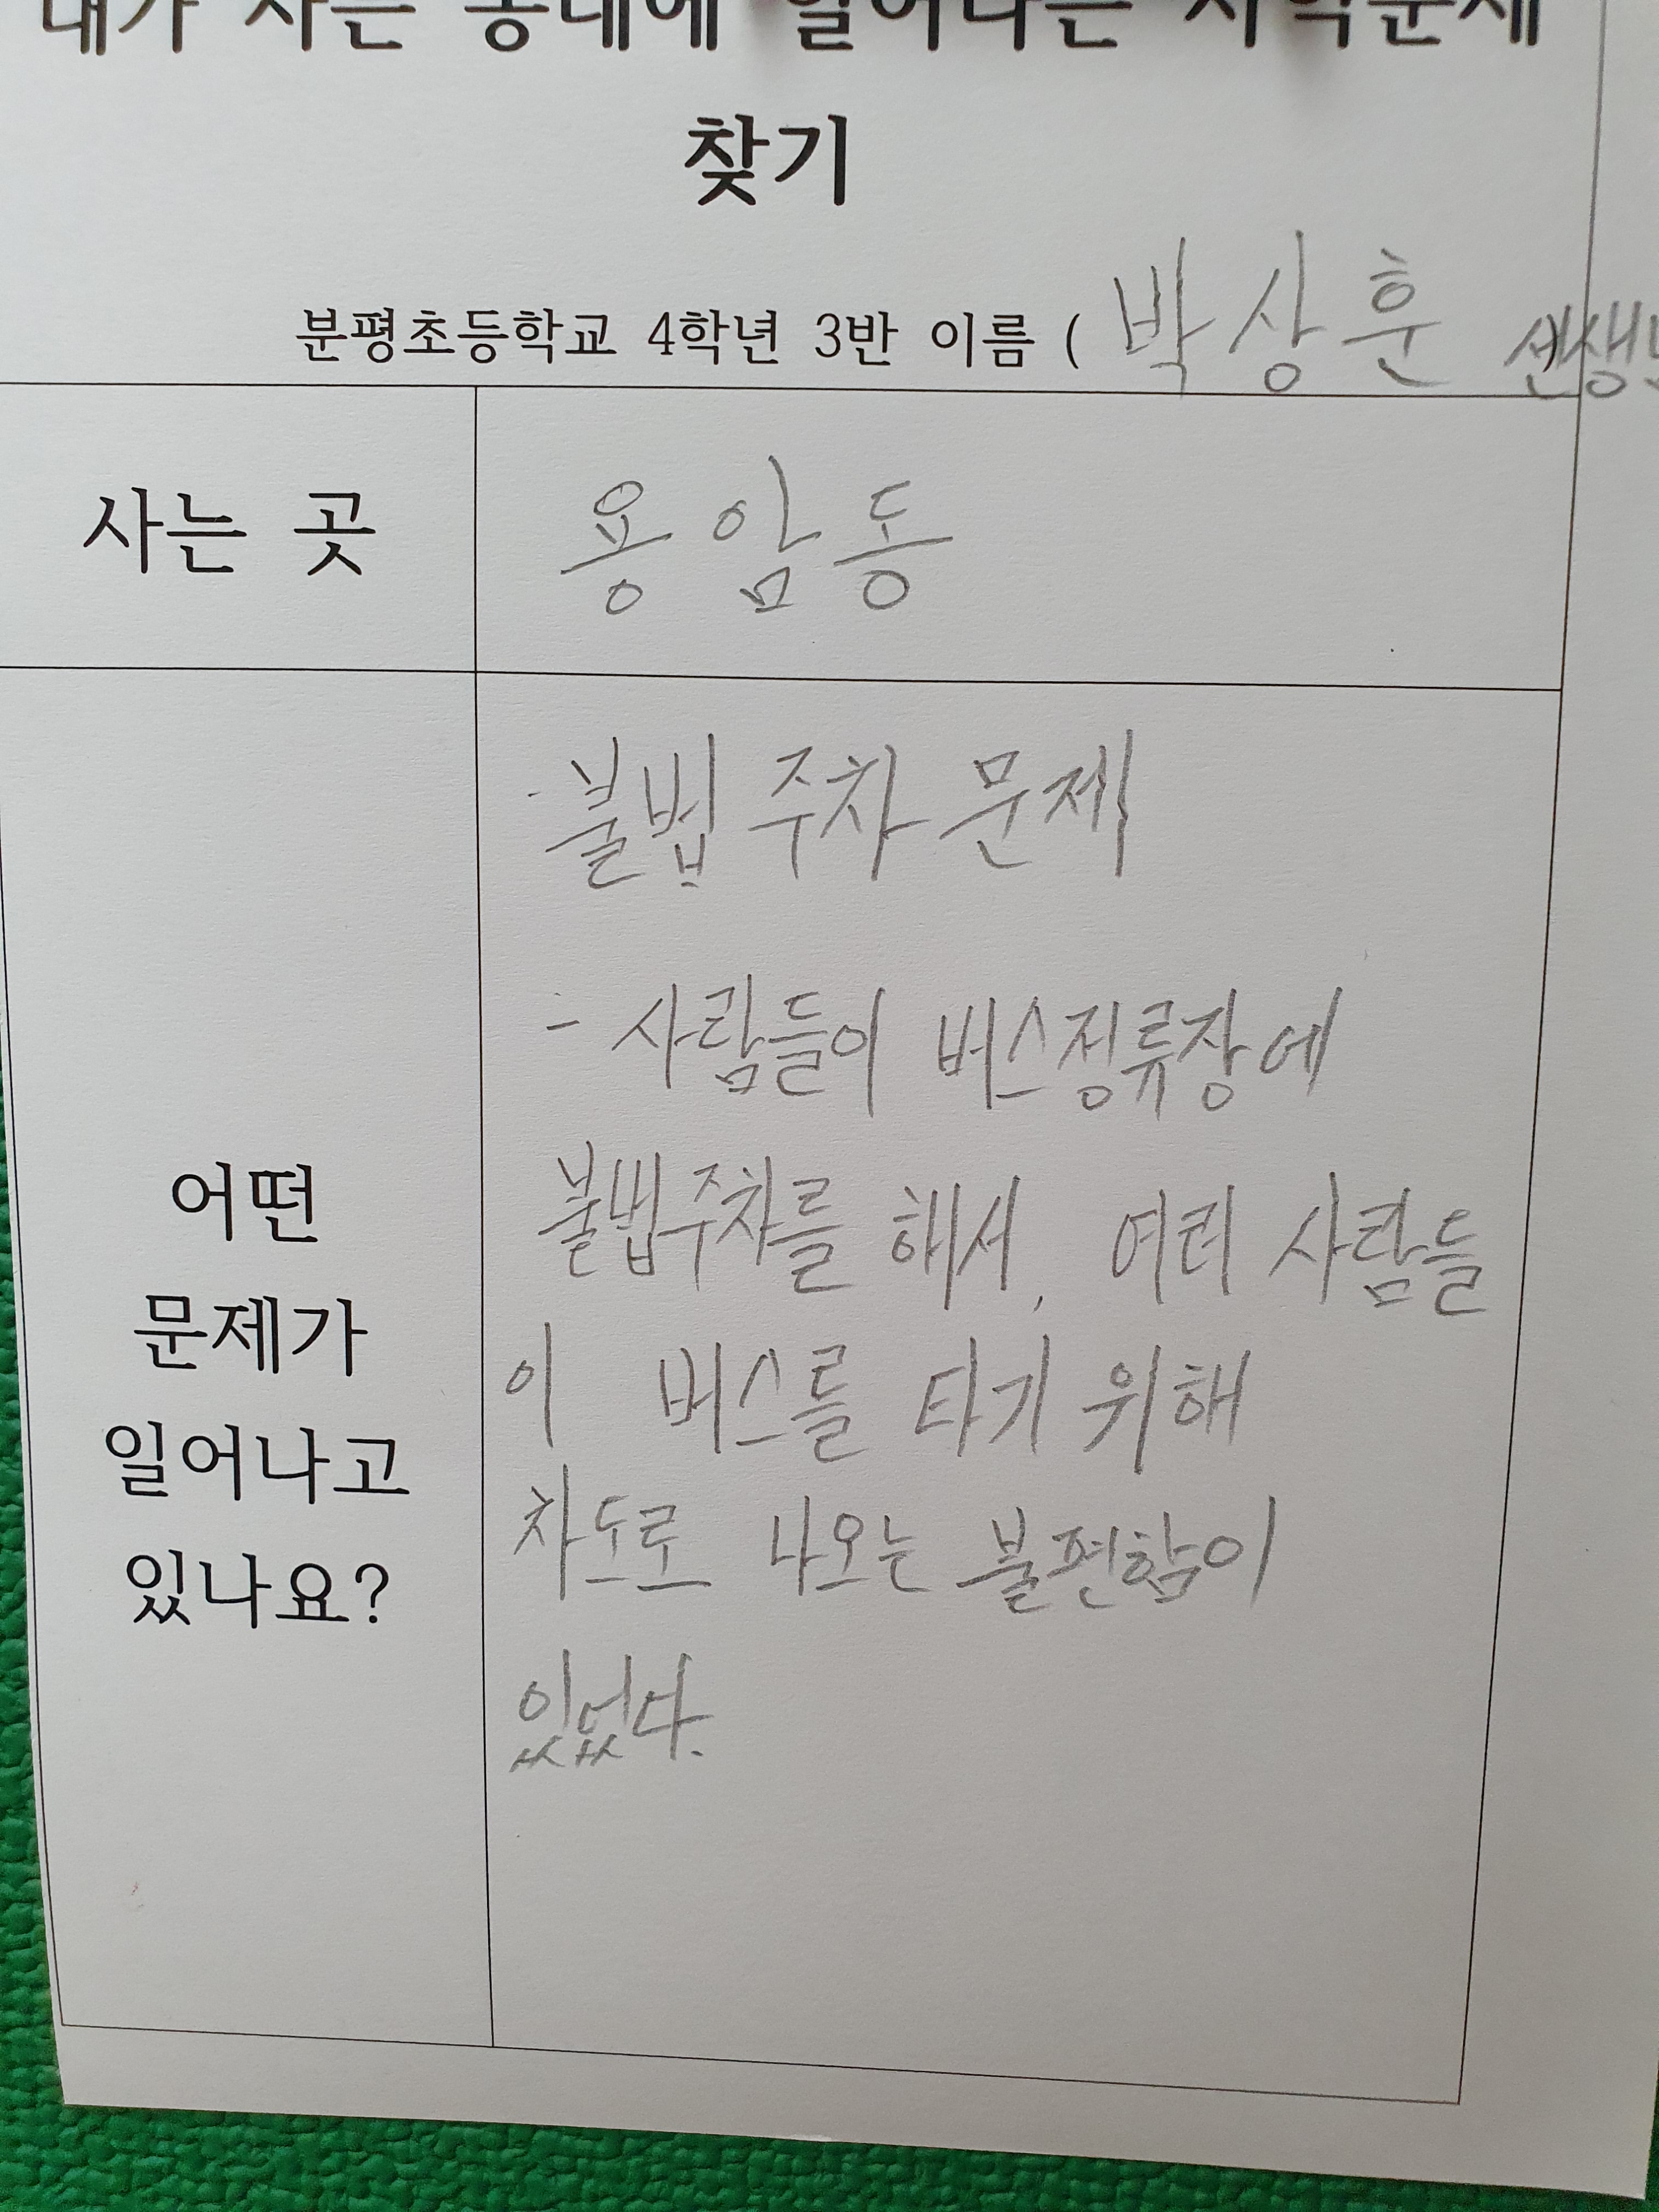 내가 사는 동네에 일어나는 지역문제
찾기
분평초등학교 4학년 3반 이름 ( 박상훈 선생님
사는 곳
용암동
· 불법 주차 문제
- 사람들이 버스정류장에
불법주차를 해서, 여러 사람들
이 버스를 타기 위해
차도로 나오는 불편함이
있었다.
어떤
문제가
일어나고
있나요?